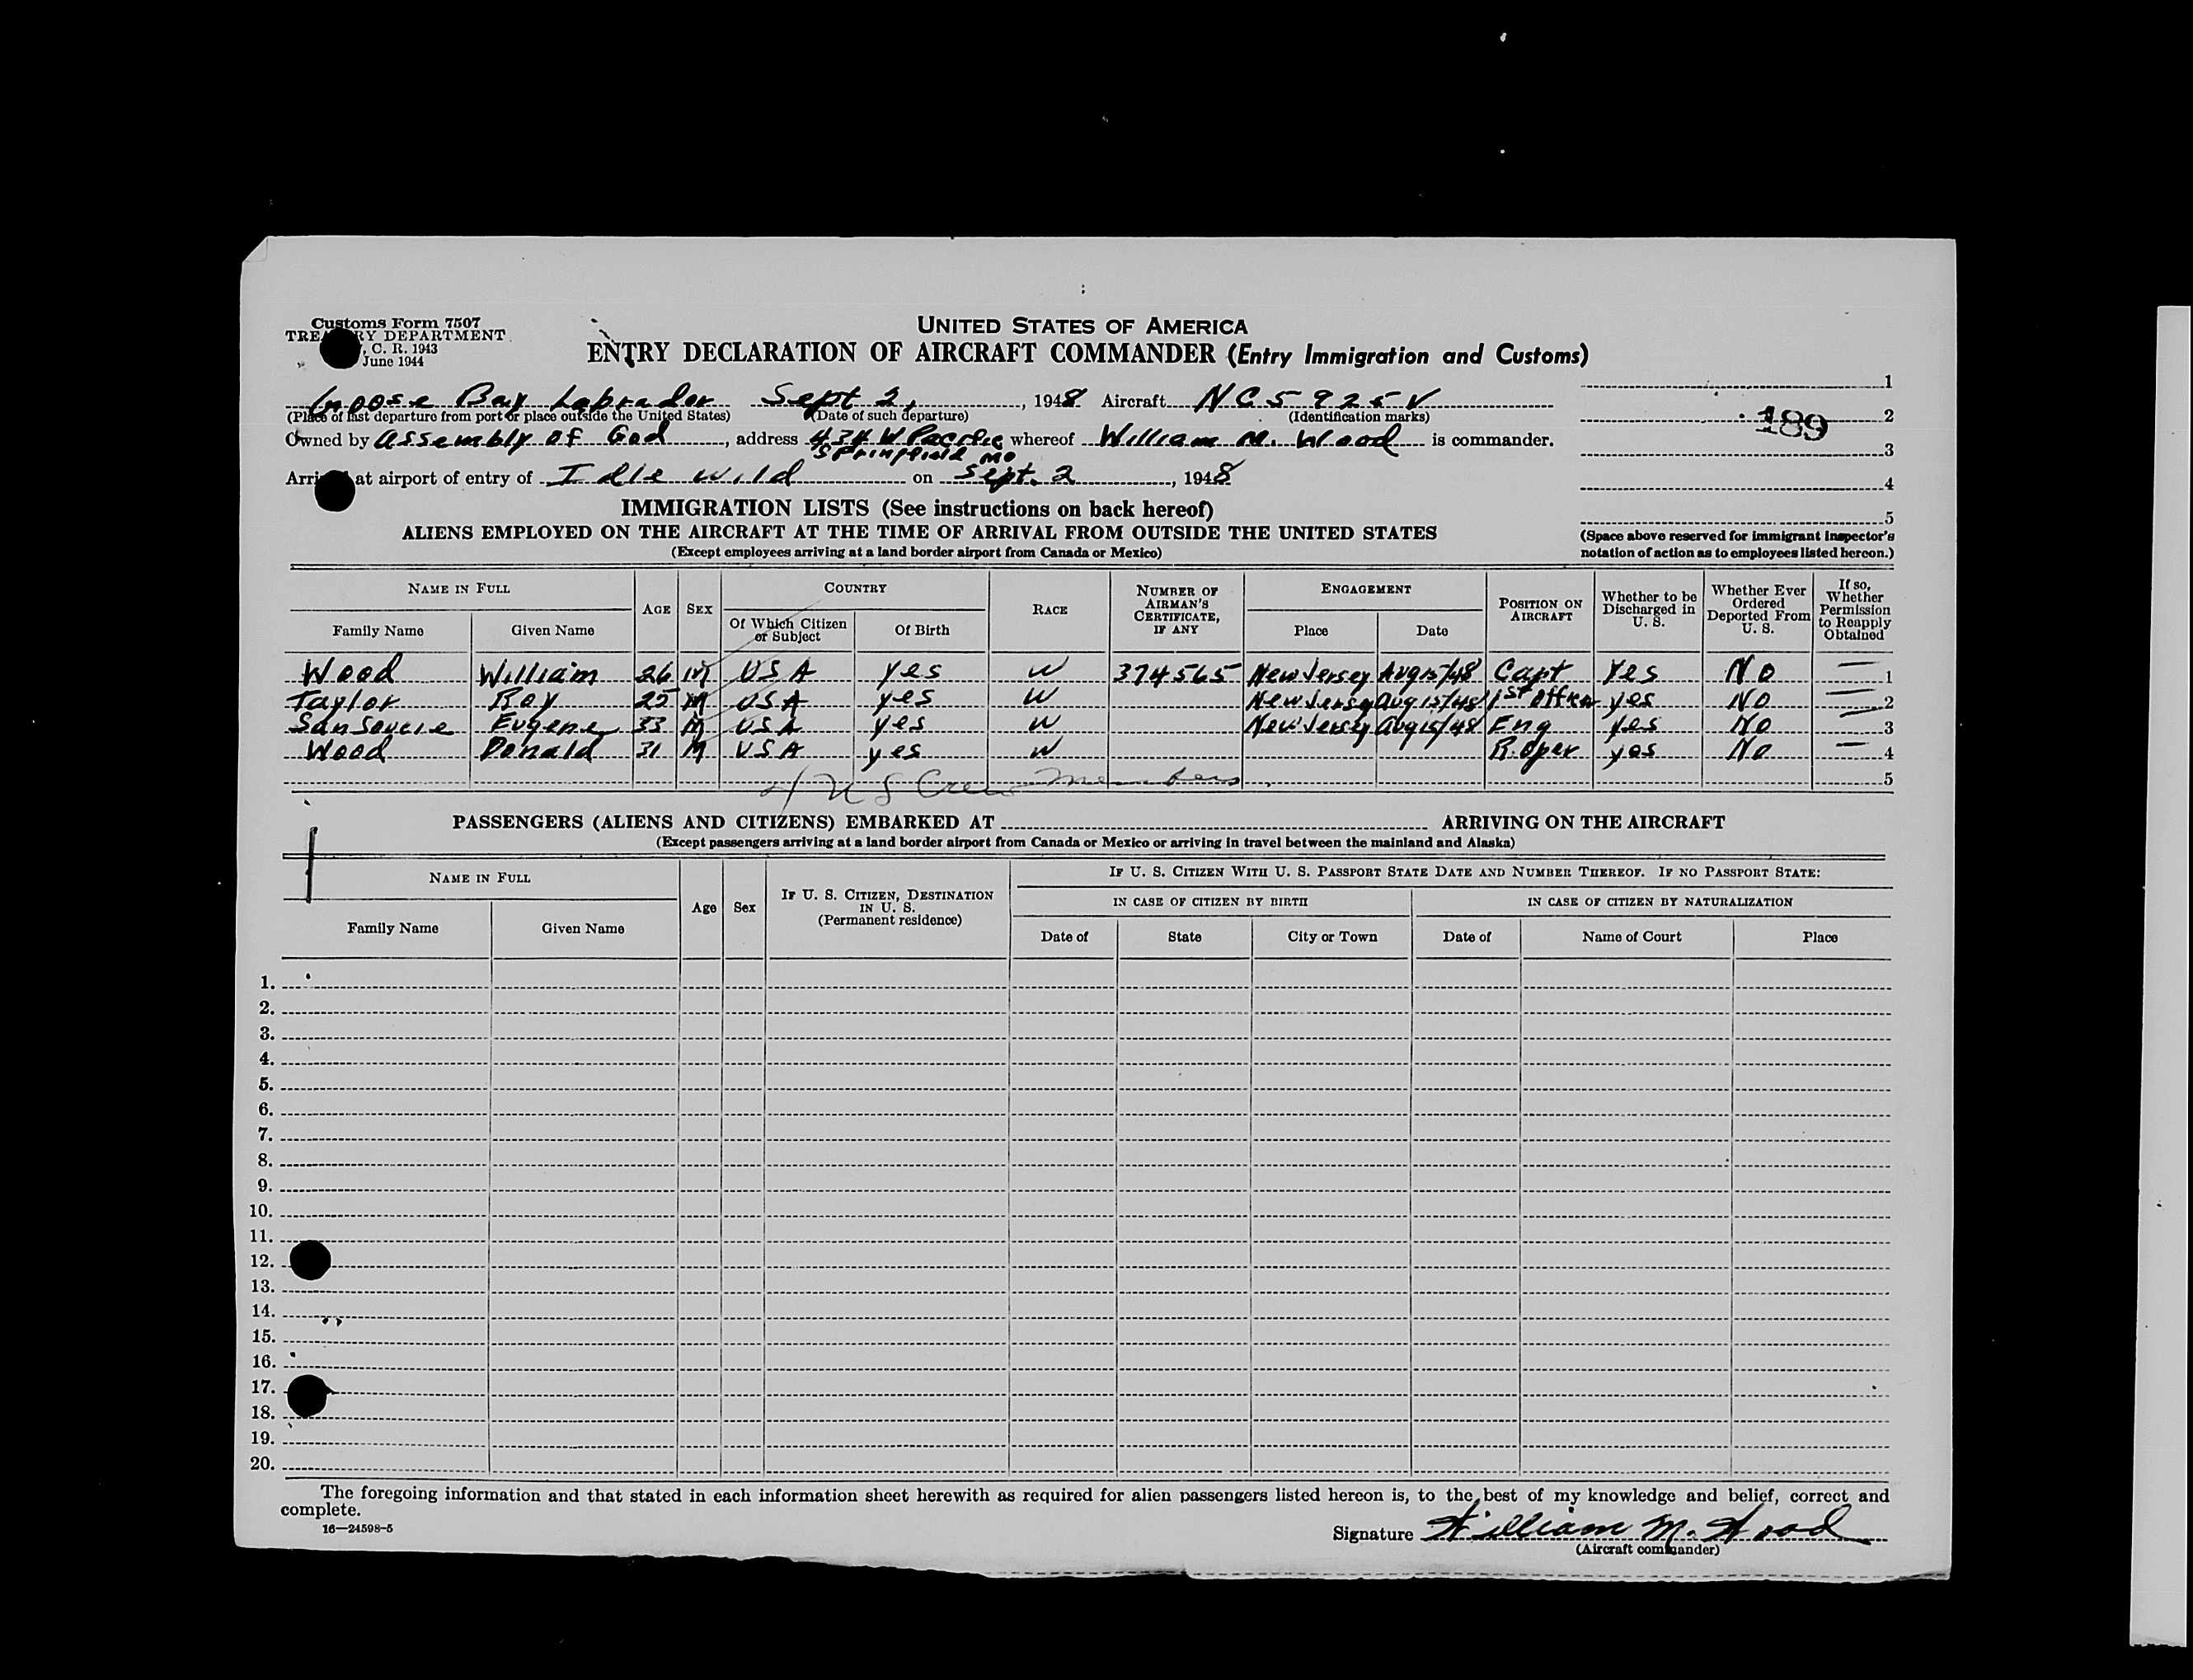 Customs Form 7507
TREA RY DEPARTMENT
, C. R. 1943
June 1944
UNITED STATES OF AMERICA
ENTRY DECLARATION OF AIRCRAFT COMMANDER (Entry Immigration and Customs)
Goose Bay Labrador Sept 2, , 1948 Aircraft NC5925V 1
(Place of last departure from port or place outside the United States) (Date of such departure) (Identification marks)
189 2
Owned by Assembly of God , address 434 W Pacific whereof William M. Wood is commander.
Springfield Mo 3
Arri at airport of entry of Idle wild on Sept. 2 , 1948 4
IMMIGRATION LISTS (See instructions on back hereof)
5
ALIENS EMPLOYED ON THE AIRCRAFT AT THE TIME OF ARRIVAL FROM OUTSIDE THE UNITED STATES
(Except employees arriving at a land border airport from Canada or Mexico)
(Space above reserved for immigrant inspector's
notation of action as to employees listed hereon.)
NAME IN FULL AGE SEX COUNTRY RACE NUMBER OF AIRMAN'S CERTIFICATE, IF ANY ENGAGEMENT POSITION ON AIRCRAFT Whether to be Discharged in U. S. Whether Ever Ordered Deported From U. S. If so, Whether Permission to Reapply Obtained
Family Name Given Name Of Which Citizen or Subject Of Birth Place Date
Wood William 26 M USA yes W 374565 New Jersey Aug 15/48 Capt Yes No — 1
Taylor Roy 25 M USA yes W New Jersey Aug 15/48 1st Officer yes No — 2
Sansevere Eugene 33 M USA yes W New Jersey Aug 15/48 Eng yes No — 3
Wood Donald 31 M USA yes W R. Oper yes No — 4
4 US Crew Members 5
PASSENGERS (ALIENS AND CITIZENS) EMBARKED AT ARRIVING ON THE AIRCRAFT
(Except passengers arriving at a land border airport from Canada or Mexico or arriving in travel between the mainland and Alaska)
NAME IN FULL Age Sex IF U. S. CITIZEN, DESTINATION IN U. S. (Permanent residence) IF U. S. CITIZEN WITH U. S. PASSPORT STATE DATE AND NUMBER THEREOF. IF NO PASSPORT STATE:
IN CASE OF CITIZEN BY BIRTH IN CASE OF CITIZEN BY NATURALIZATION
Family Name Given Name Date of State City or Town Date of Name of Court Place
1.
2.
3.
4.
5.
6.
7.
8.
9.
10.
11.
12.
13.
14.
15.
16.
17.
18.
19.
20.
The foregoing information and that stated in each information sheet herewith as required for alien passengers listed hereon is, to the best of my knowledge and belief, correct and
complete.
16—24598-5
Signature William M. Wood
(Aircraft commander)